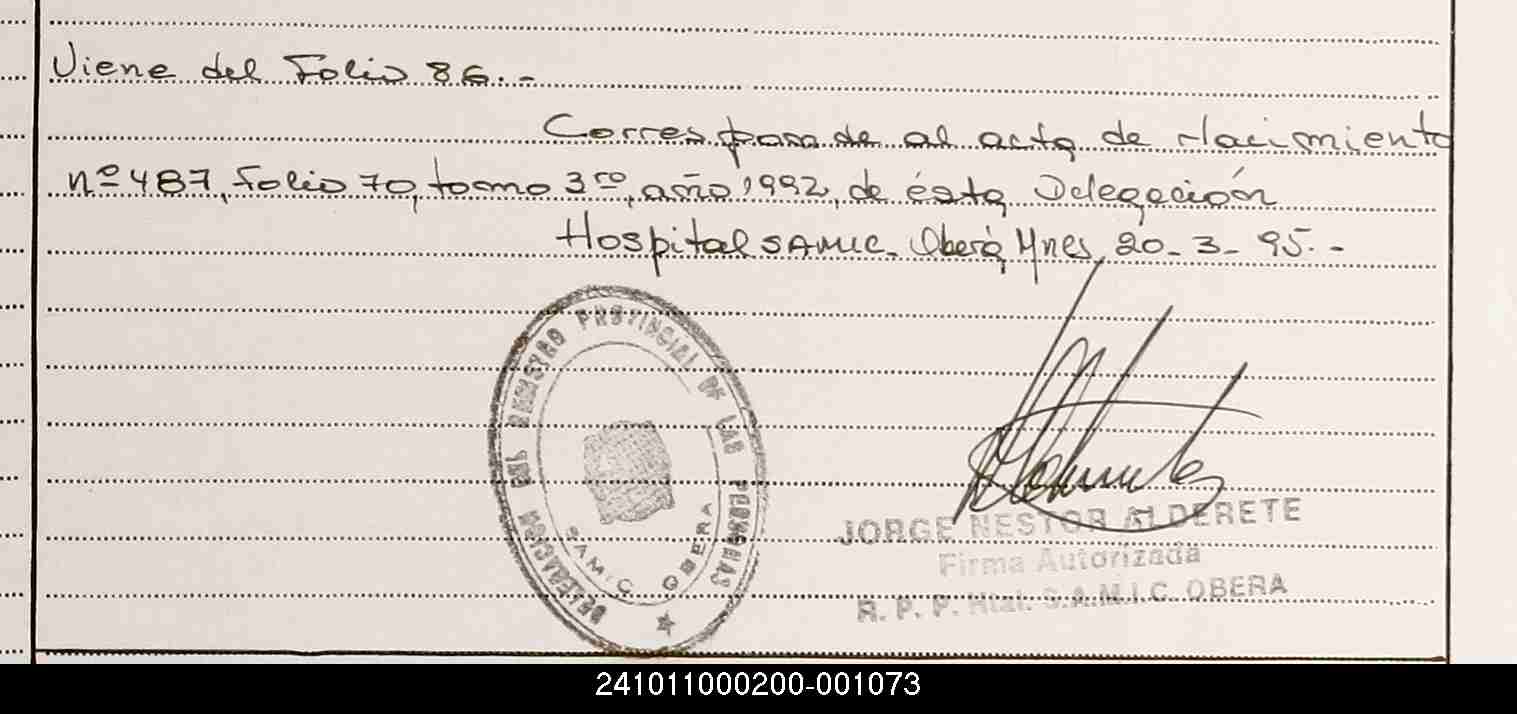 Viene del Folio 86.-
Corresponde al acta de Nacimiento
nº 487, Folio 70, tomo 3ro, año 1992, de ésta Delegación
Hospital SAMIC. Oberá, Mnes, 20-3-95.-
DELEGACION DEL REGISTRO PROVINCIAL DE LAS PERSONAS
SAMIC OBERA
JORGE NESTOR ALDERETE
Firma Autorizada
R. P. P. Htal. S.A.M.I.C. OBERA
241011000200-001073